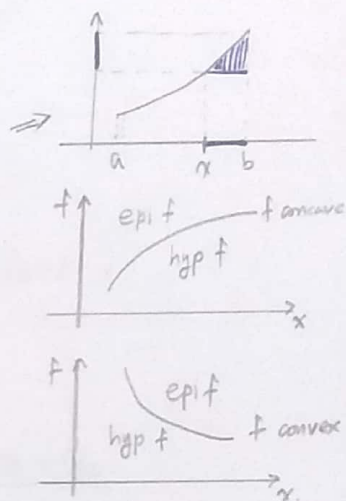 a x b
f
epi f
f concave
hyp f
x
f
epi f
hyp f
f convex
x